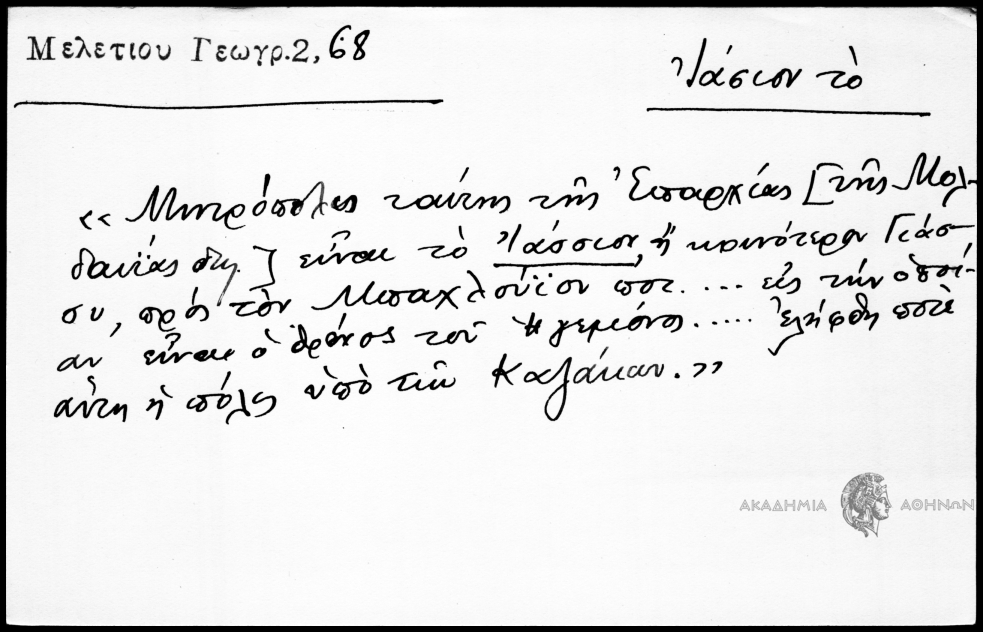 Μελετιου Γεωγρ.2, 68
Ἰάσιον τὸ
«Μητρόπολις ταύτης τῆς Ἐπαρχίας [τῆς Μολ-
δαυίας δηλ.] εἶναι τὸ Ἰάσσιον, ἢ κοινότερον Γιάσ-
συ, πρὸς τὸν Μπαχλούϊον ποτ. .... εἰς τὴν ὁποί-
αν εἶναι ὁ θρόνος τοῦ Ἡγεμόνος ..... ἐλήφθη ποτὲ
αὕτη ἡ πόλις ὑπὸ τῶν Καζάκων.»
ΑΚΑΔΗΜΙΑ ΑΘΗΝΩΝ